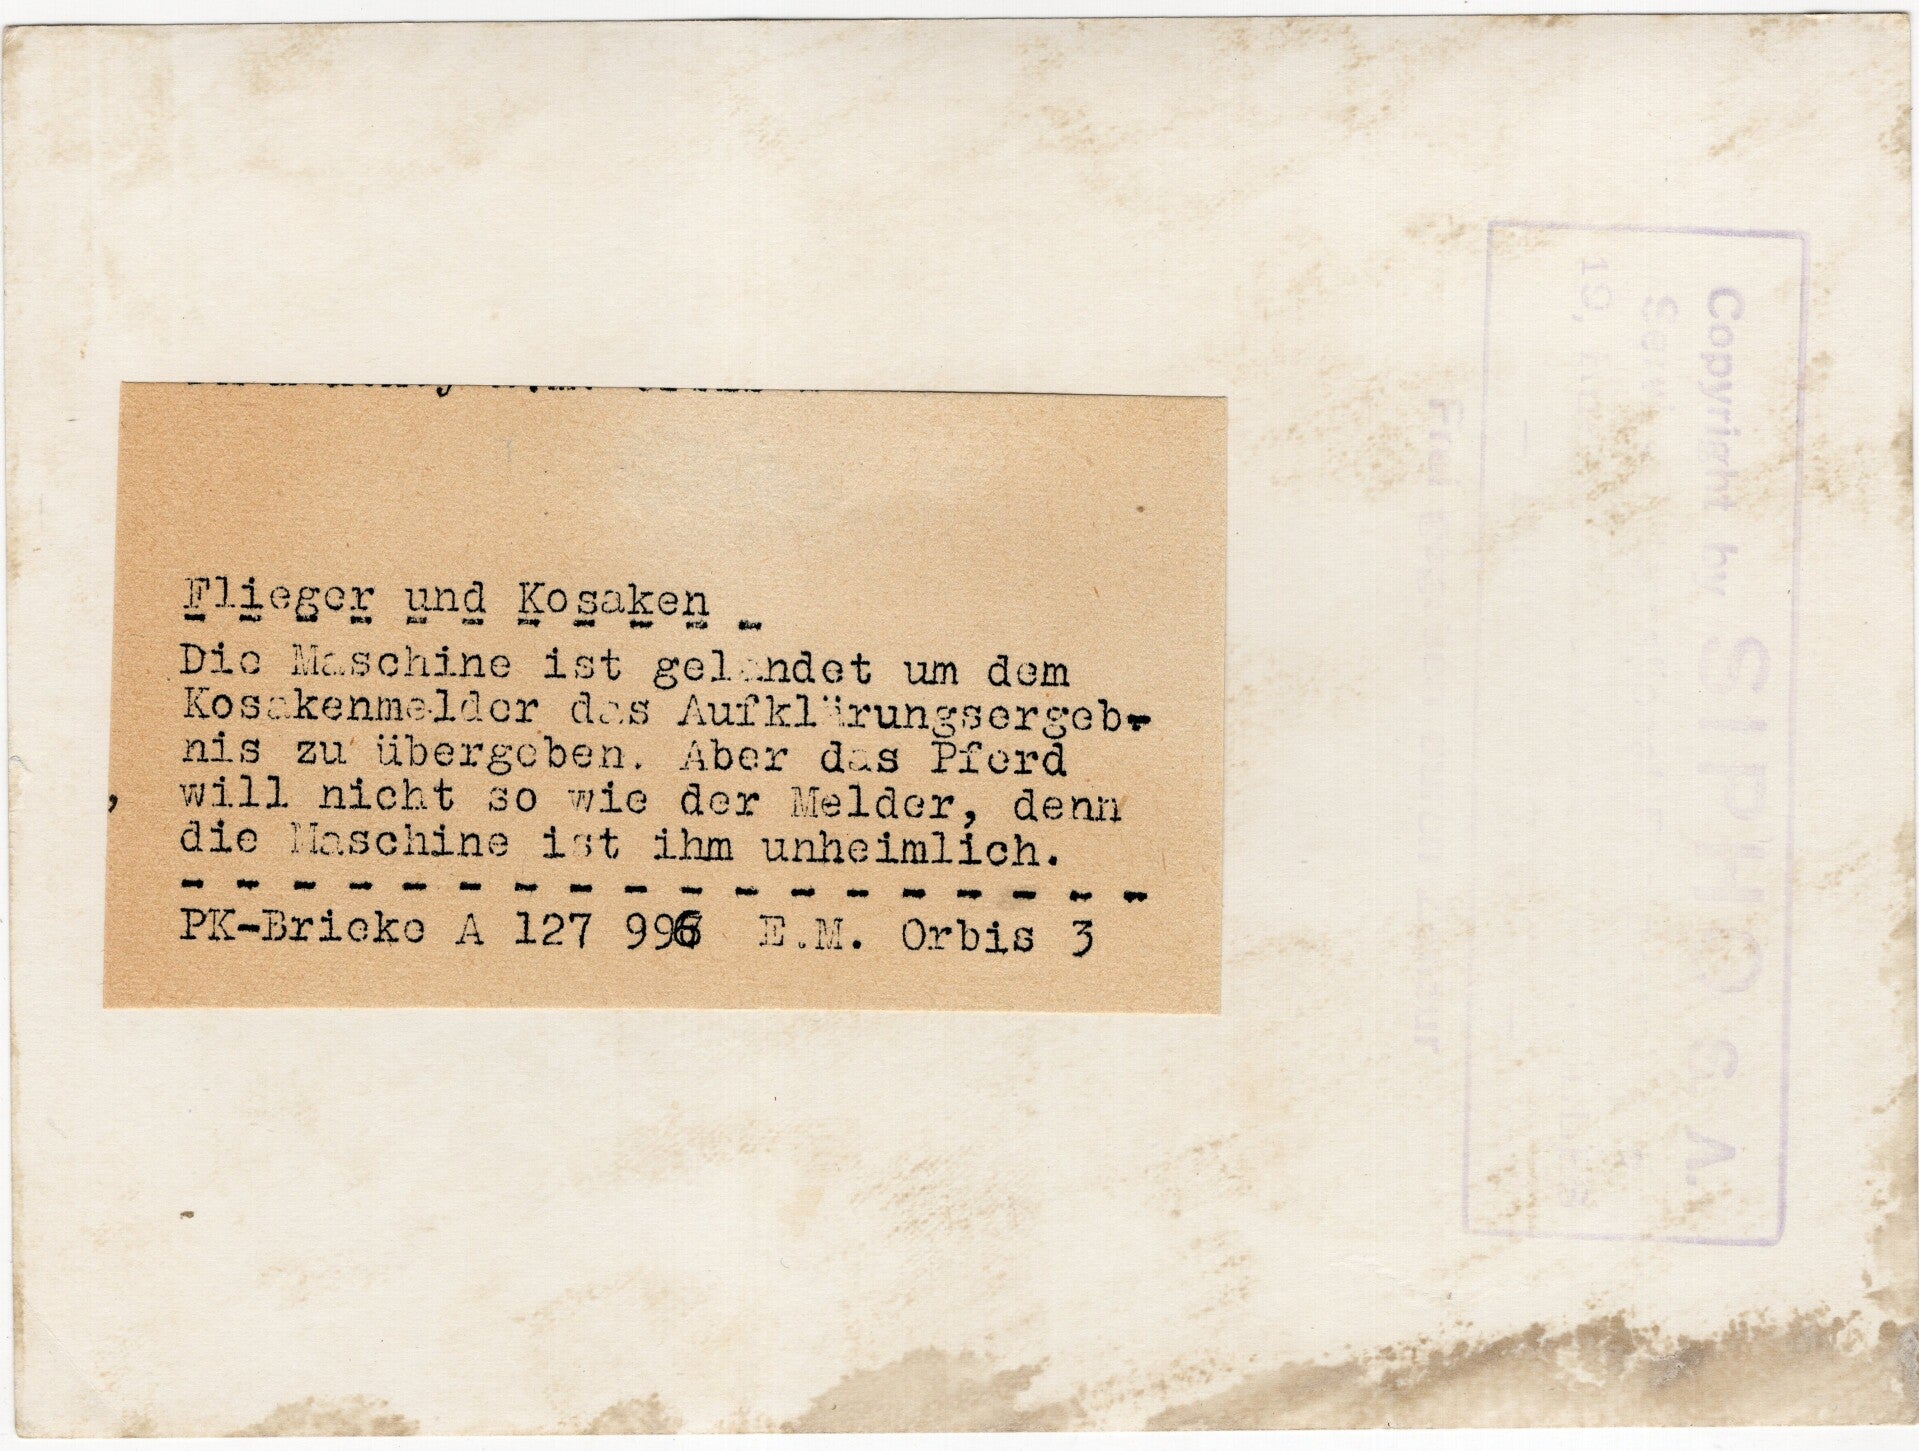 Flieger und Kosaken
Die Maschine ist gelandet um dem
Kosakenmelder das Aufklärungsergeb-
nis zu übergeben. Aber das Pferd
will nicht so wie der Melder, denn
die Maschine ist ihm unheimlich.
- - - - - - - - - - - - - - - - - -
PK-Brieke A 127 996 E.M. Orbis 3
Copyright by